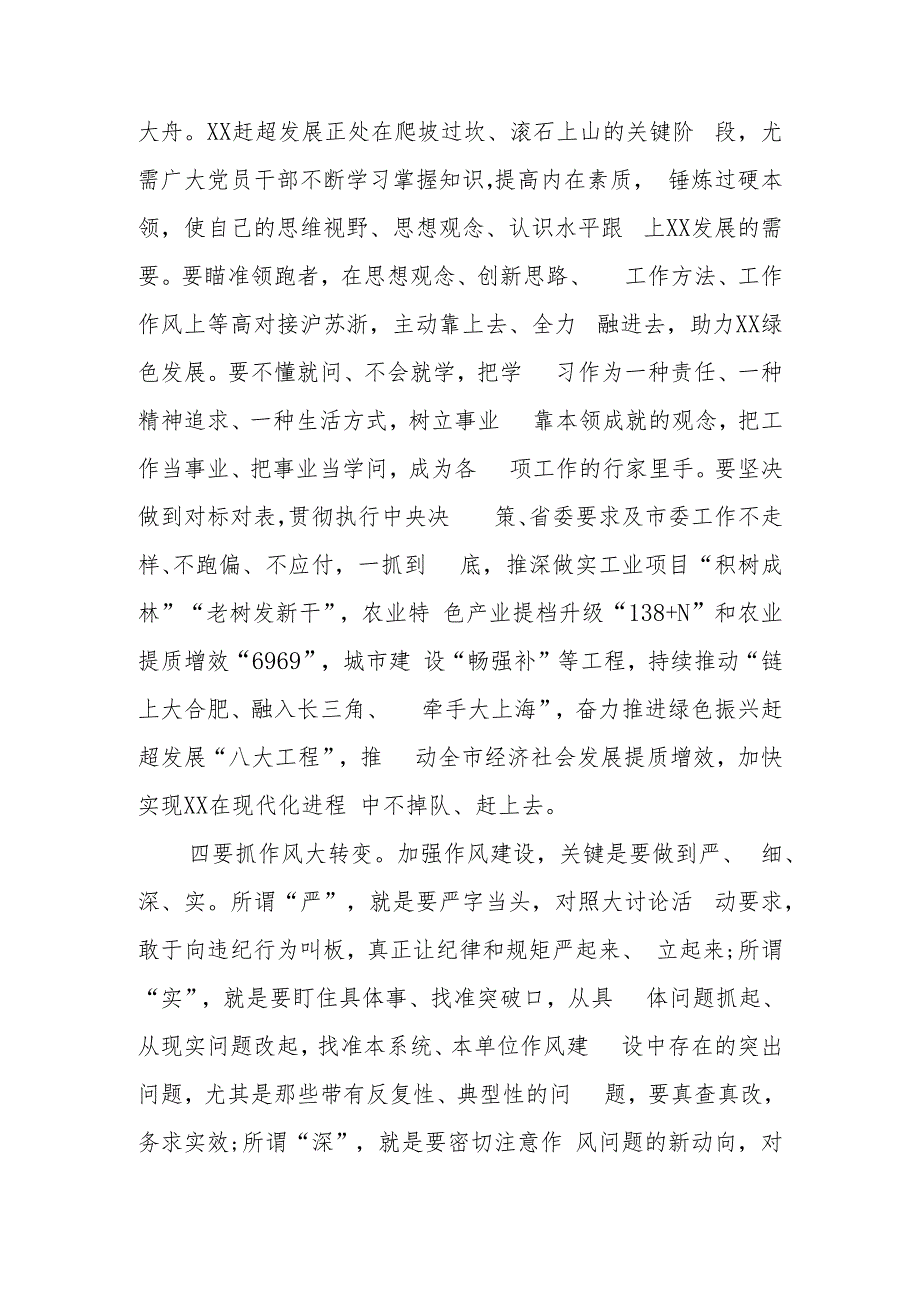 大舟。XX赶超发展正处在爬坡过坎、滚石上山的关键阶 段，尤
需广大党员干部不断学习掌握知识,提高内在素质， 锤炼过硬本
领，使自己的思维视野、思想观念、认识水平跟 上XX发展的需
要。要瞄准领跑者，在思想观念、创新思路、 工作方法、工作
作风上等高对接沪苏浙，主动靠上去、全力 融进去，助力XX绿
色发展。要不懂就问、不会就学，把学 习作为一种责任、一种
精神追求、一种生活方式，树立事业 靠本领成就的观念，把工
作当事业、把事业当学问，成为各 项工作的行家里手。要坚决
做到对标对表,贯彻执行中央决 策、省委要求及市委工作不走
样、不跑偏、不应付，一抓到 底，推深做实工业项目“积树成
林”“老树发新干”，农业特 色产业提档升级“138+N”和农业
提质增效“6969”，城市建 设“畅强补”等工程，持续推动“链
上大合肥、融入长三角、 牵手大上海”，奋力推进绿色振兴赶
超发展“八大工程”，推 动全市经济社会发展提质增效，加快
实现XX在现代化进程 中不掉队、赶上去。
四要抓作风大转变。加强作风建设，关键是要做到严、 细、
深、实。所谓“严”，就是要严字当头，对照大讨论活 动要求，
敢于向违纪行为叫板，真正让纪律和规矩严起来、 立起来;所谓
“实”，就是要盯住具体事、找准突破口，从具 体问题抓起、
从现实问题改起，找准本系统、本单位作风建 设中存在的突出
问题，尤其是那些带有反复性、典型性的问 题，要真查真改，
务求实效;所谓“深”，就是要密切注意作 风问题的新动向，对